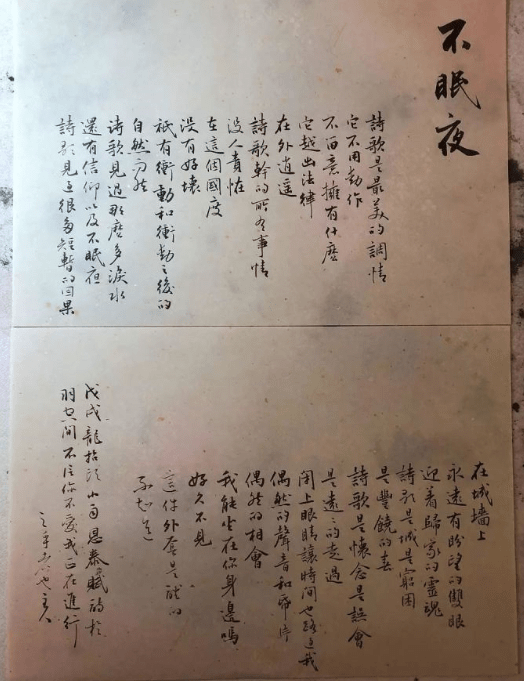 不眠夜
詩歌是最美的調情
它不用動作
不留意擁有什麼
它越出法律
在外逍遥
詩歌幹的所有事情
没人責怪
在這個國度
没有好壞
衹有衝動和衝動之後的
自然而然
诗歌見過那麼多淚水
還有信仰以及不眠夜
詩歌見過很多短暫的因果
在城墙上
永遠有盼望的雙眼
迎着歸家的靈魂
詩歌是城是窮困
是豐饒的春
詩歌是懷念是誤會
是遠遠的走過
閉上眼睛讓時間也路過我
偶然的聲音和停
偶然的相會
我能坐在你身邊嗎
好久不見
這件外套是
不知道
戊戌龍抬头小雨恩泰賦於
羽空間不信你不愛我正在進行
主人